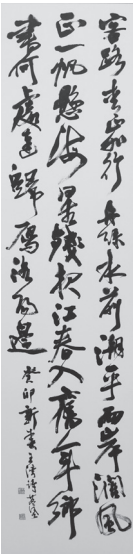 客路青山外行舟綠水前潮平兩岸闊風
正一帆懸海日生殘夜江春入舊年鄉
書何處達歸雁洛陽邊 癸卯新春王灣詩